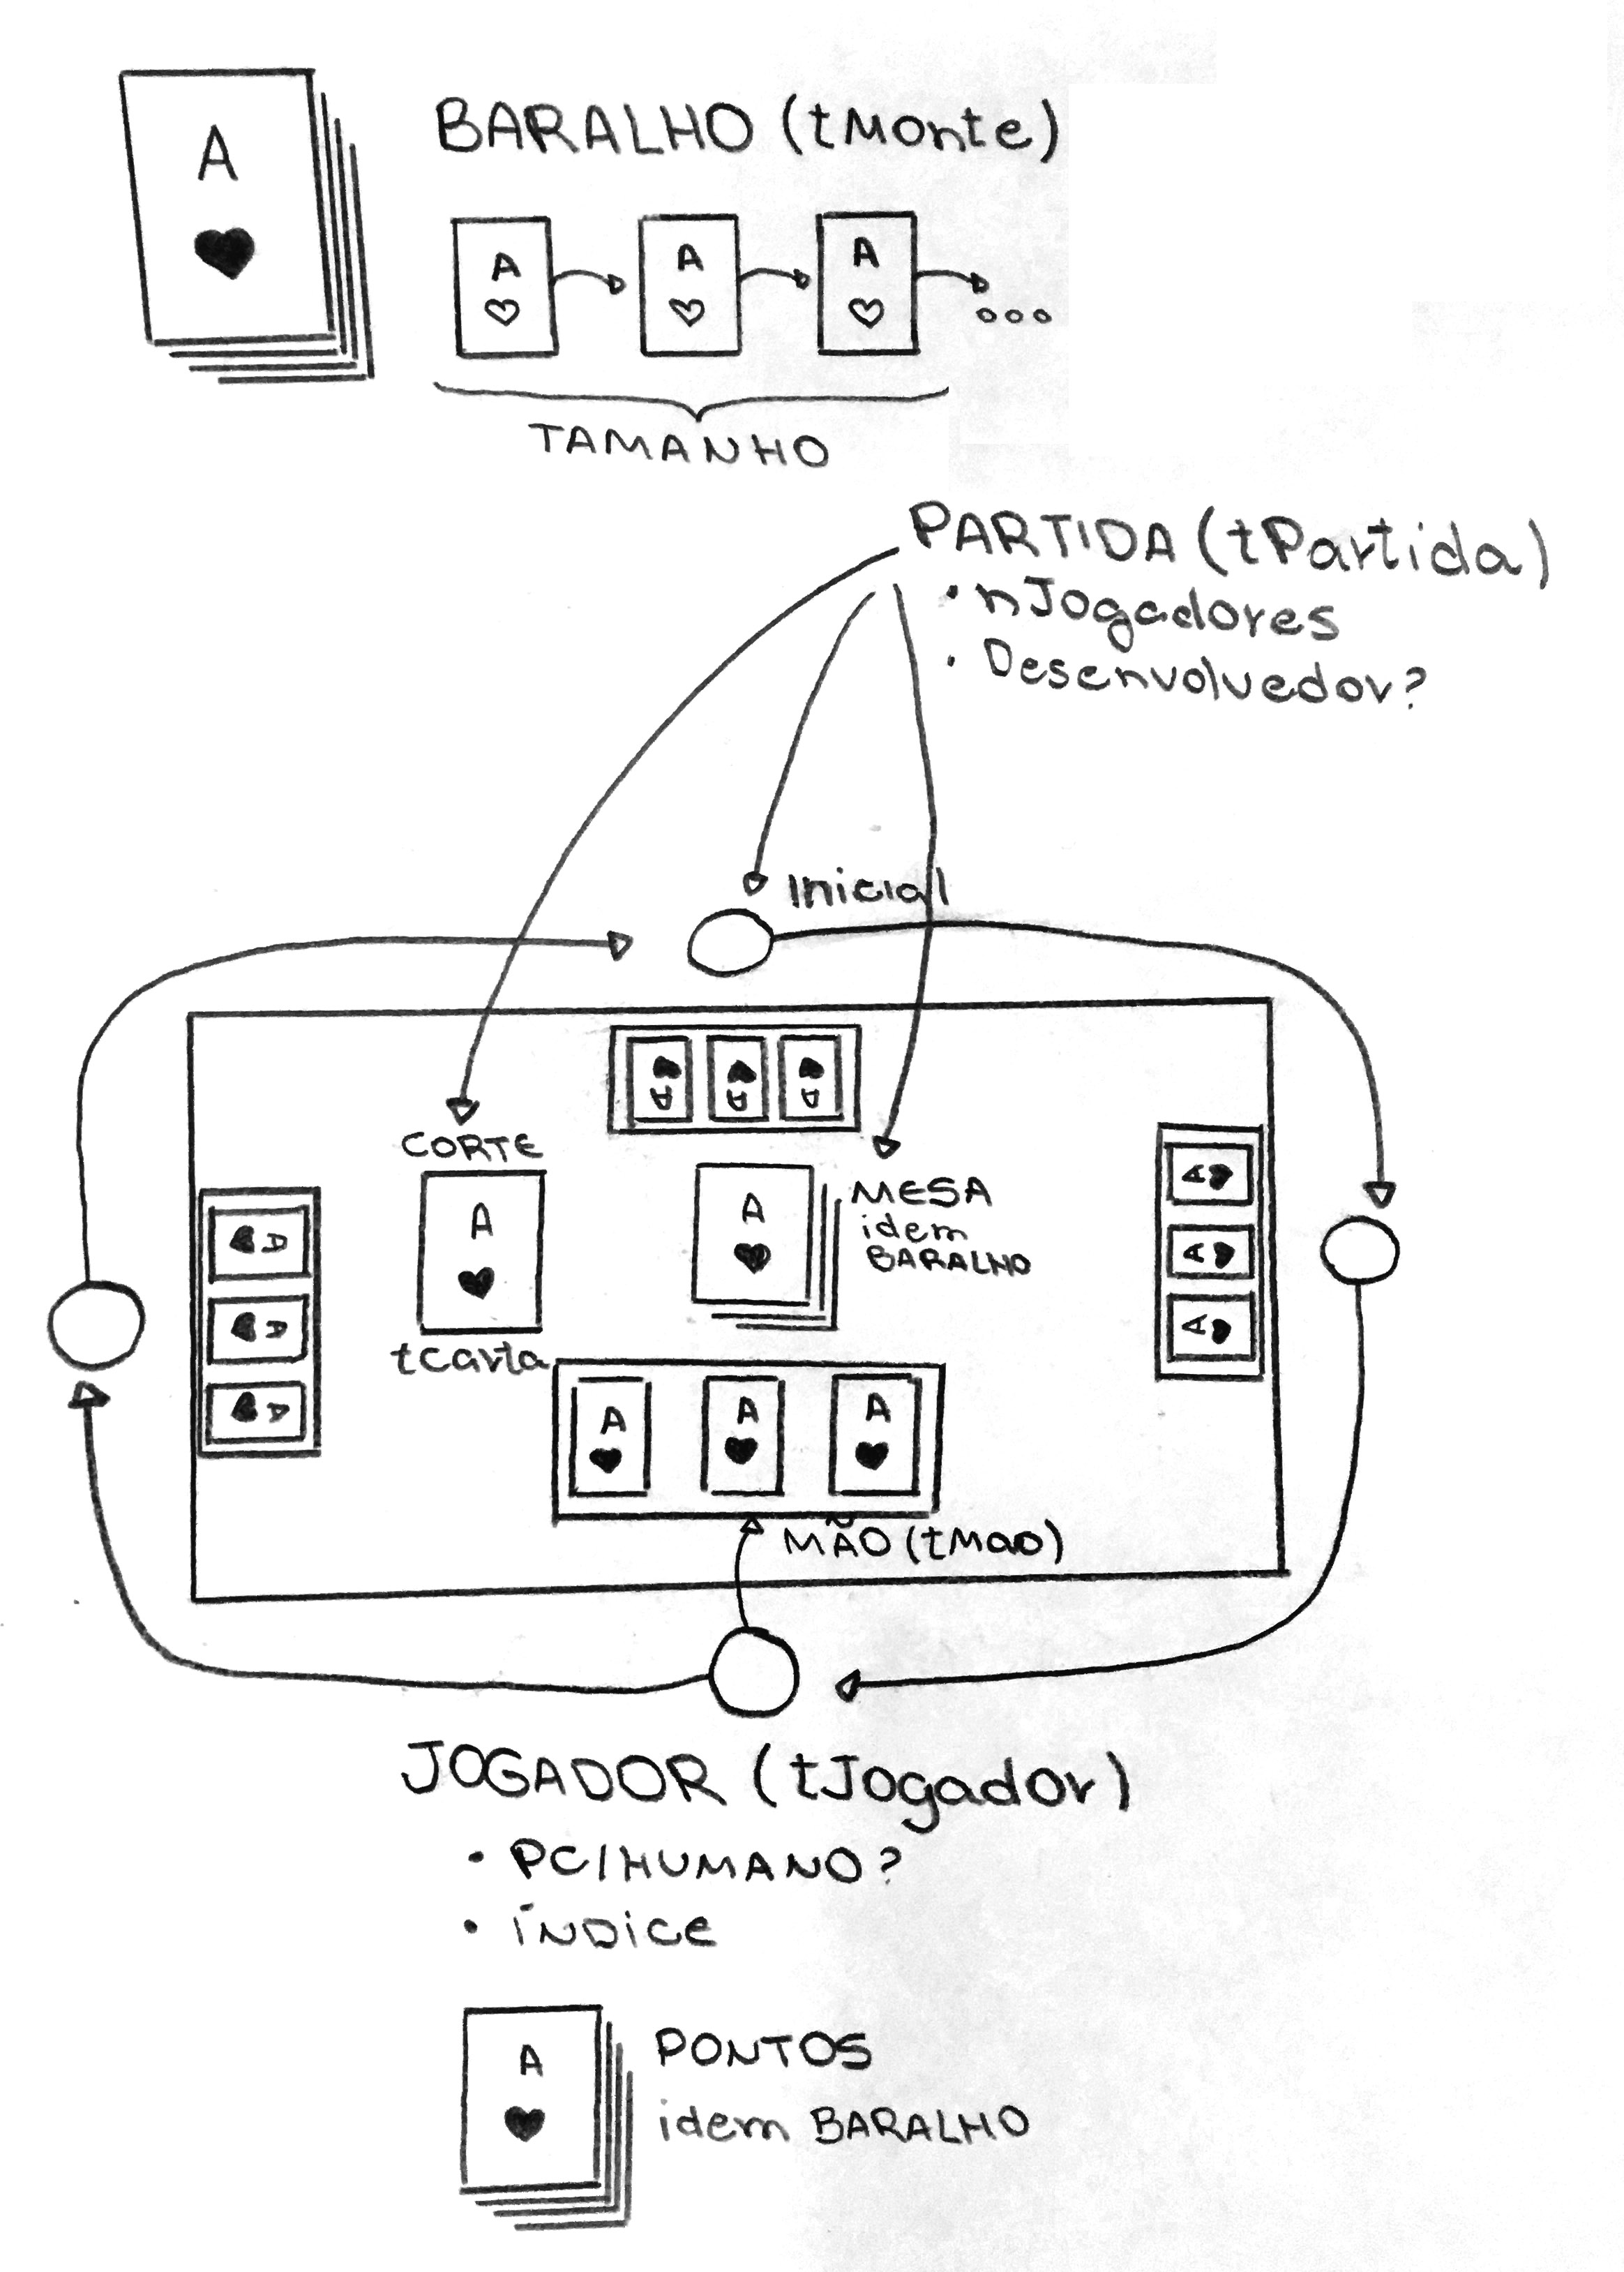 A
BARALHO (tMonte)
A A A
TAMANHO
PARTIDA (tPartida)
• nJogadores
• Desenvolvedor?
Inicial
A A A
CORTE
A
tCarta
A
MESA
idem
BARALHO
A
A
A
A
A
A
A A A
MÃO (tMao)
JOGADOR (tJogador)
• PC/HUMANO?
• ÍNDICE
A
PONTOS
idem BARALHO